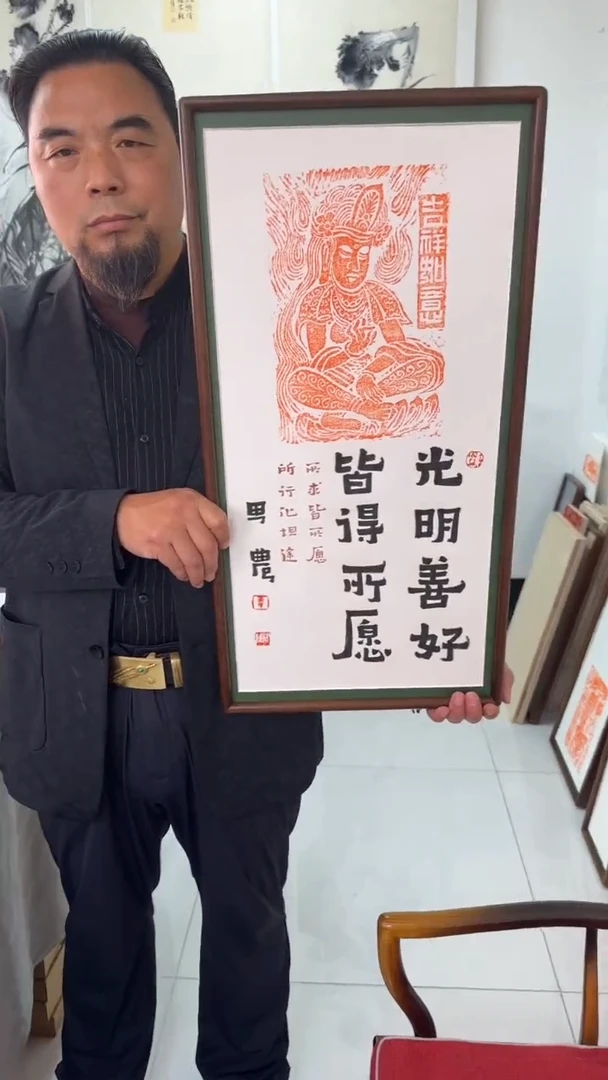 吉祥如意
光明善好
皆得所愿
所求皆所愿
所行化坦途
農